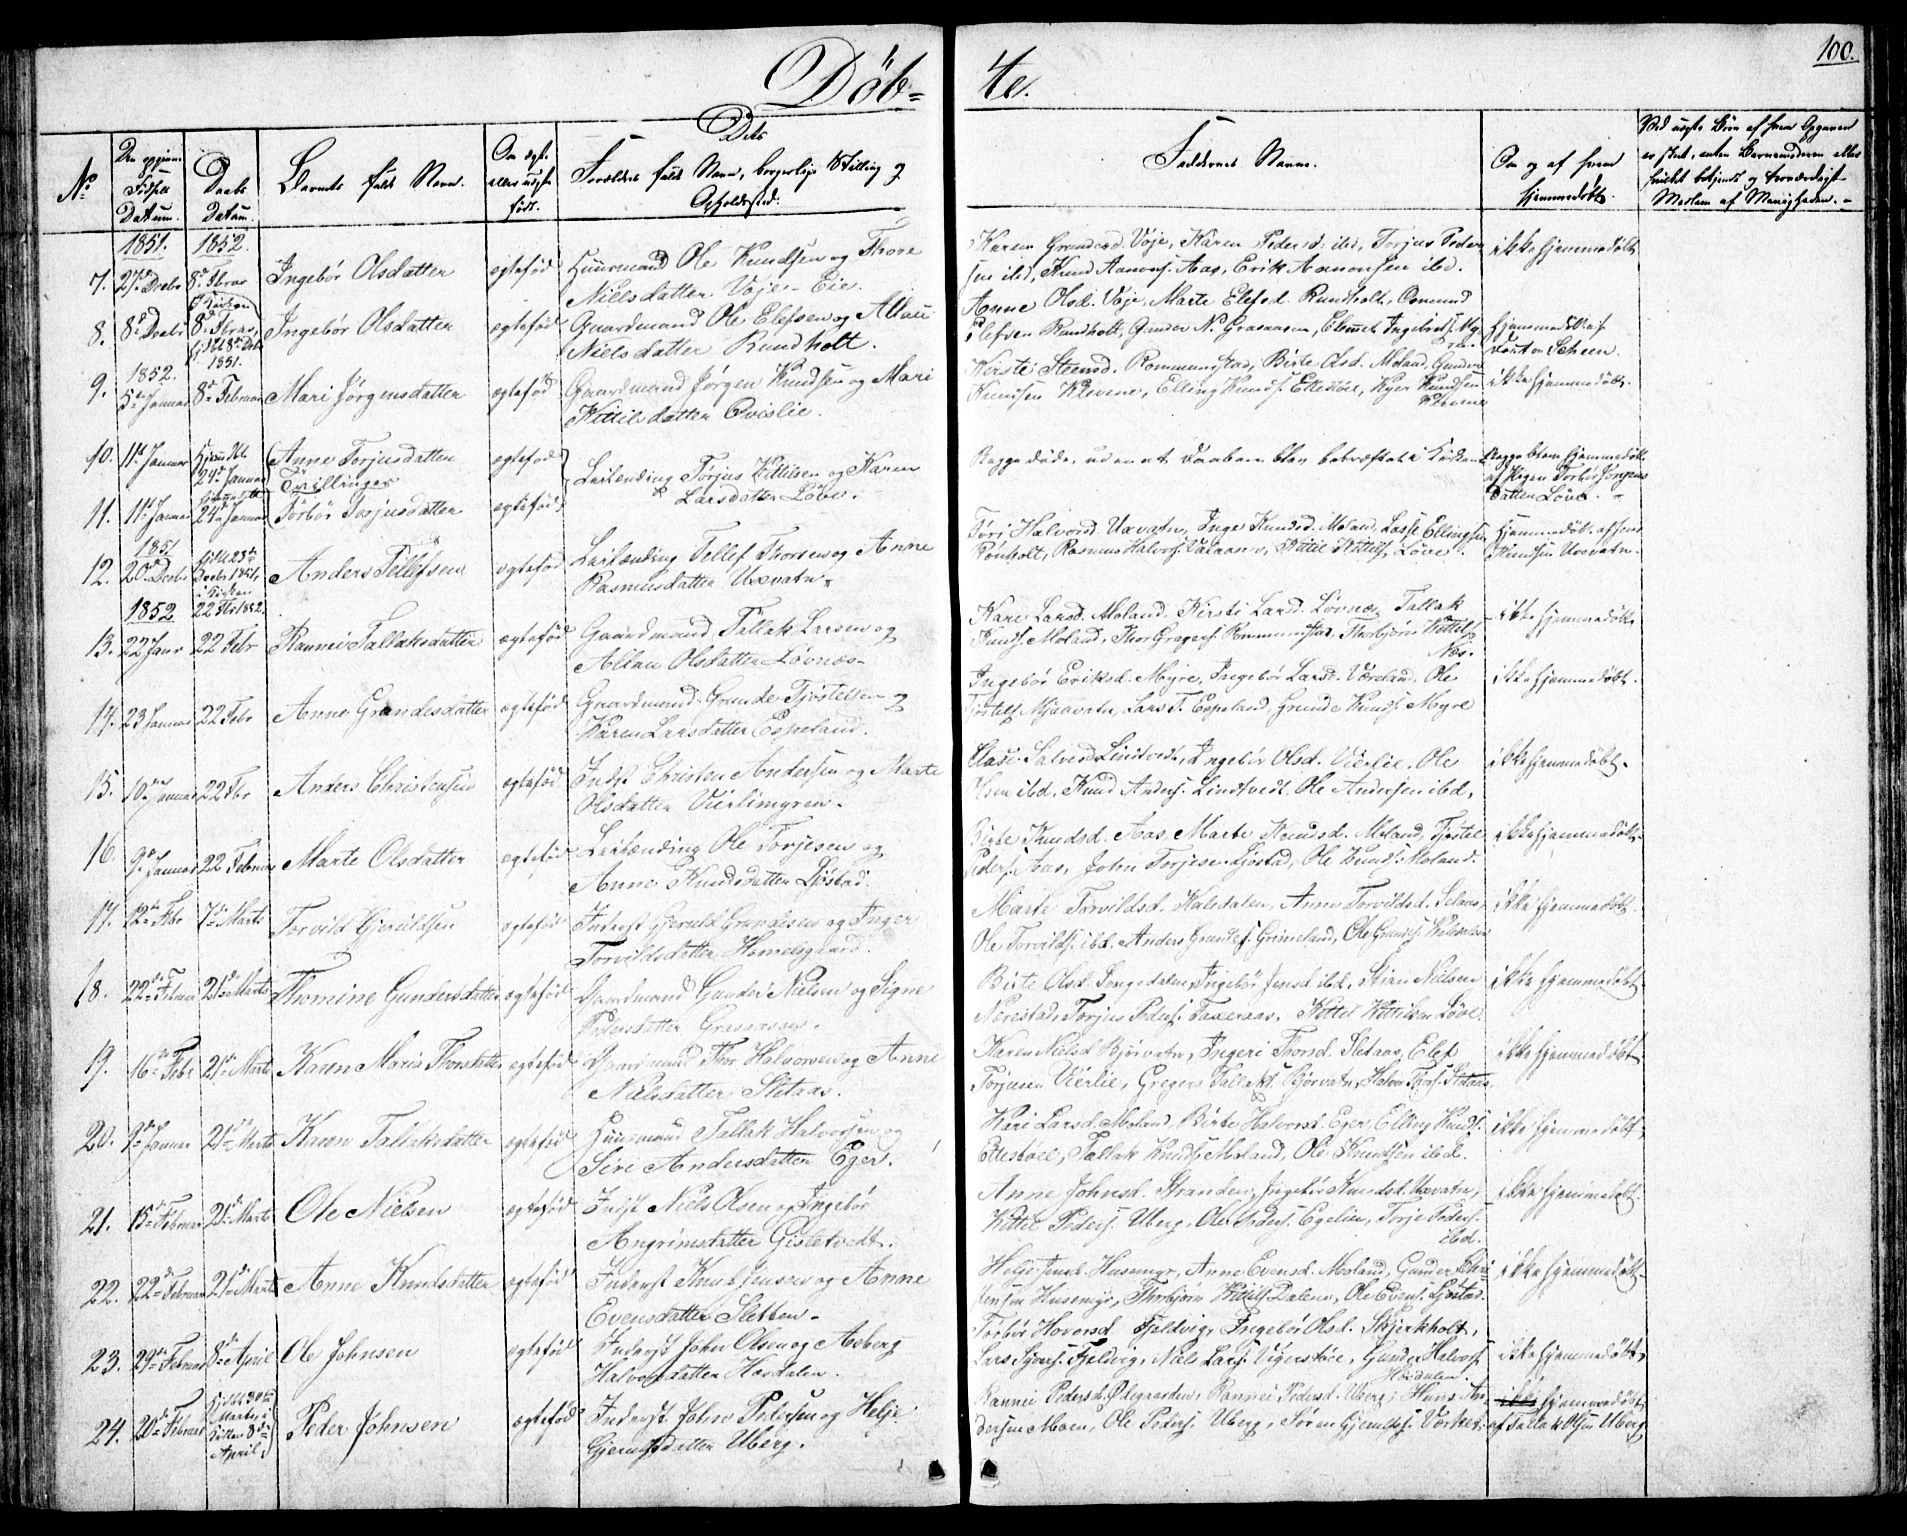 100.
Døb=
te.
No
Den opgivne Fødsels Datum.
Daabs Datum.
Barnets fulde Navn.
Om ægte eller uægte født.
Dets Forældres fulde Navn, borgerlige Stilling og Opholdssted.
Faddernes Navne.
Om og af hvem hjemmedøbt.
Ved uægte Børn af hvem Opgaven er skeet, enten Barnemoderen eller
Medlem af Menigheden.
1851. 1852.
7. 27de Decbr 8de Fbrar Ingebør Olsdatter ægtefød Huusmand Ole Knudsen og Thore
Nielsdatter Voje-Eie.
Karen Grundesd. Voje, Karen Pedersd: ibd, Torjus Peder
sen ibd, Knud Aanons. Aas, Erik Aanonsen ibd.
ikke hjemmedøbt
8. 8de Decbr i Kirken 8de Fbrar, hjdbt 8de Dcbr 1851. Ingebør Olsdatter ægtefød Gaardmand Ole Elefsen og
Nielsdatter Rundholt.
Anne Olsd. Voje, Marte Elefsd. Rundholt, Osmund
Elefsen Rundholt, Gunder N. Graaaasen, Ellef Ingebrets. My
hjemmedøbt af
Scheen.
1852.
9. 5te Januar 8de Februar Mari Jørgensdatter ægtefød Gaardmand Jørgen Knudsen og Mari
Kittilsdatter Qvislie.
Kirsti Steensd. Rommenstad, Birte Olsd. Moland, Gunder
Knudsen Klevene, Elling Knuds. Ettestøel, Kyer Knudsen
Klevene
ikke hjemmedøbt
10. 11te Januar Hjem dbt 24de Januar Anne Torjusdatter ægtefød Leilænding Torjus Kittilsen og Karen
Tvillinger
Larsdatter Løve.
Begge døde, uden at Daaben blev bekræftet i Kirken
Begge bleve hjemmedøbt
af Pigen Torbør Jørgens
datter Løve.
11. 11te Januar 24de Januar Torbør Torjusdatter ægtefød
1851
12. 20de Decbr hjdbt 23de Decbr 1851, i Kirken 22 Fbr 1852. Anders Tellefsen ægtefød Leilænding Tellef Thorsen og Anne
Rasmusdatter Uxvatn.
Tori Halvorsd. Uxvatn, Inger Knudsd. Moland, Lasse Ellingsen
Rønholt, Rasmus Halvors. Valaan, Kittil Kittils. Løve.
hjemmedøbt af
Knudsen Uxvatn.
1852
13. 22 Janr 22 Febr Rannei Tallaksdatter ægtefød Gaardmand Tallak Larsen og
Olsdatter Løvnæs.
Kari Larsd. Moland, Kirsti Larsd. Løvnæs, Tallak
Knuds. Moland, Thor Gregers. Rommenstad, Thorbjørn Kittels.
Næs.
ikke hjemmedøbt
14. 23 Januar 22 Febr Anne Grundesdatter ægtefød Gaardmand Grunde Tjøstelsen og
Karen Larsdatter Espeland.
Ingebør Eriksd. Myre, Ingebør Larsd. Væreland, Ole
Tjøstels. Mjaavatn, Lars T. Espeland, Grunde Knuds. Myre
ikke hjemmedøbt.
15. 10de Januar 22 Fbr Anders Christensen ægtefød Inds Christen Andersen og Marte
Olsdatter Vierlimyren.
Salvesd. Lindtvedt, Ingebør Olsd. Vierlie, Ole
Olsen ibd, Knud Anders. Lindtvedt, Ole Andersen ibd,
ikke hjemmedøbt.
16. 9de Januar 22 Februar Marte Olsdatter ægtefød Leilænding Ole Torjesen og
Anne Knudsdatter Ljøstad.
Birte Knudsd. Aas, Marte Knudsd. Moland, Tjøstel
Peders. Aas, John Torjesen Ljøstad, Ole Knuds. Moland.
ikke hjemmedøbt
17. 12te Fbr 7de Marts Torvild Gjeruldsen ægtefød Inderst Gjeruld Grundesen og Inger
Torvildsdatter
Marte Torvildsd. Halsdalen, Anne Torvildsd. Selaas,
Ole Torvilds. ibd. Anders Grundes. Grimeland, Ole Grundes.
ikke hjemmedøbt.
18. 22de Februar 21de Marts Thomine Gundersdatter ægtefød Gaardmand Gunder Nielsen og Signe
Pedersdatter Graaaasen.
Birte Olsd. Songedalen, Ingebør Jensd. ibd, Stian Nielsen
Nerestad, Torjus Peders. Faxeraas, Kittel Kittilsen Løve.
ikke hjemmedøbt
19. 16de Febr 21de Marts Karen Maria Thorsdatter ægtefød Gaardmand Thor Halvorsen og Anne
Nielsdatter Sletaas.
Karen Nielsd. Bjorvatn, Ingeri Thorsd. Sletaas, Elef
Torjusen Vierlie, Gregers Tallaks. Bjorvatn, Halvor Thors. Sletaas
ikke hjemmedøbt
20. 9de Januar 21de Marts Karen Tallaksdatter ægtefød Huusmand Tallak Halvorsen og
Siri Andersdatter Eger.
Kari Larsd. Moland, Birte Halvorsd. Eger, Elling Knuds.
Ettestøel, Tallak Knuds. Moland, Ole Knudsen ibd.
ikke hjemmedøbt,
21. 15de Februar 21de Marts Ole Nielsen ægtefød Inds Niels Olsen og Ingebør
Angrimsdatter Gistetvedt.
Anne Johnsd. Stranden, Ingebør Knudsd. Uxvatn,
Kittil Peders. Uberg, Ole Peders. Egelien, Torje Peders.
ibd.
ikke hjemmedøbt.
22. 22de Februar 21de Marts Anne Knudsdatter ægtefød Inderst Knud Jensen og Anne
Evensdatter Sletten.
Helje Jensd. Husemyr, Anne Evensd. Moland, Gunder
Husemyr, Thorbjørn Kittils. Dalene, Ole Evens. Ljøstad.
ikke hjemmedøbt
23. 29de Februar 8de April Ole Johnsen ægtefød Inderst John Olsen og Asberg
Halvorsdatter Hasdalen.
Torbør Hovorsd. Fjeldvig, Ingebør Olsd. Skjerkholt,
Lars Fjeldvig, Niels Lars. Vigerstøe, Gunder Halvors.
Hasdalen.
ikke hjemmedøbt,
24. 20de Februar hjdbt 30te Marts, 8de April Peder Johnsen ægtefød Inderst John Pedersen og Helje
Gjermsdatter Uberg.
Rannei Pedersd. Ødegaarden, Rannei Pedersd. Uberg, Hans An
dersen Moen, Ole Peders. Uberg, Søren Gjermss. Vorket.
ikke hjemmedøbt
af Tallak Olsen Uberg